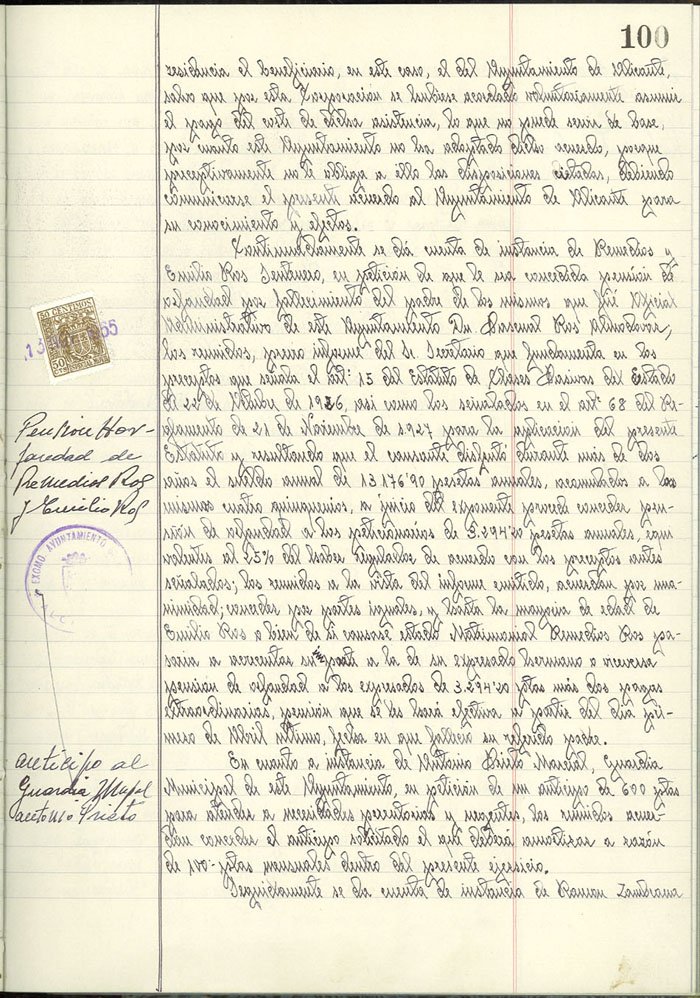 100
residencia el beneficiario, en este caso, el del Ayuntamiento de Alicante,
salvo que por esta Corporación se hubiese acordado voluntariamente asumir
el pago del coste de dicha asistencia, lo que no puede servir de base,
por cuanto este Ayuntamiento no ha adoptado dicho acuerdo, porque
preceptivamente no le obliga a ello las disposiciones citadas, debiendo
comunicarse el presente acuerdo al Ayuntamiento de Alicante para
su conocimiento y efectos.
Continuadamente se dá cuenta de instancia de Remedios y
Emilio Ros Sentenero, en petición de que le sea concedida pensión de
orfandad por fallecimiento del padre de los mismos que fué Oficial
Administrativo de este Ayuntamiento Dn Pascual Ros Almodovar,
los reunidos, previo informe del Sr. Secretario que fundamenta en los
preceptos que señala el artº 15 del Estatuto de Clases Pasivas del Estado
de 22 de Octubre de 1926, asi como los señalados en el artº 68 del Re-
glamento de 21 de Noviembre de 1927 para la aplicación del presente
Estatuto y resultando que el causante disfrutó durante más de dos
años el sueldo anual de 13176'90 pesetas anuales, acumulados a las
mismas cuatro quinquenios, a juicio del exponente procede conceder pen-
sión de orfandad a los peticionarios de 3.294'20 pesetas anuales, equi
valentes al 25% del haber regulador de acuerdo con los preceptos antes
señalados; los reunidos a la vista del informe emitido, acuerdan por una-
nimidad; conceder por partes iguales, y hasta la mayoria de edad de
Emilio Ros o bien de si causase estado Matrimonial Remedios Ros pa-
saria a acrecentar su parte a la de su expresado hermano o viceversa
pensión de orfandad a los expresados de 3.294'20 ptas más dos pagas
extraordinarias, pensión que se les hará efectiva a partir del dia pri-
mero de Abril último, fecha en que falleció su referido padre.
En cuanto a instancia de Antonio Prieto Marcial, Guardia
Municipal de este Ayuntamiento, en petición de un anticipo de 600 ptas
para atender a necesidades perentorias y urgentes, los reunidos acuer-
dan conceder el anticipo solicitado el que deberá amortizar a razón
de 100- ptas mensuales dentro del presente ejercicio.
Seguidamente se da cuenta de instancia de Ramon Zambrana
50 CENTIMOS
Pension Hor-
fandad de
Remedios Ros
y Emilio Ros
EXCMO. AYUNTAMIENTO
anticipo al
Guardia Mupal
antonio Prieto